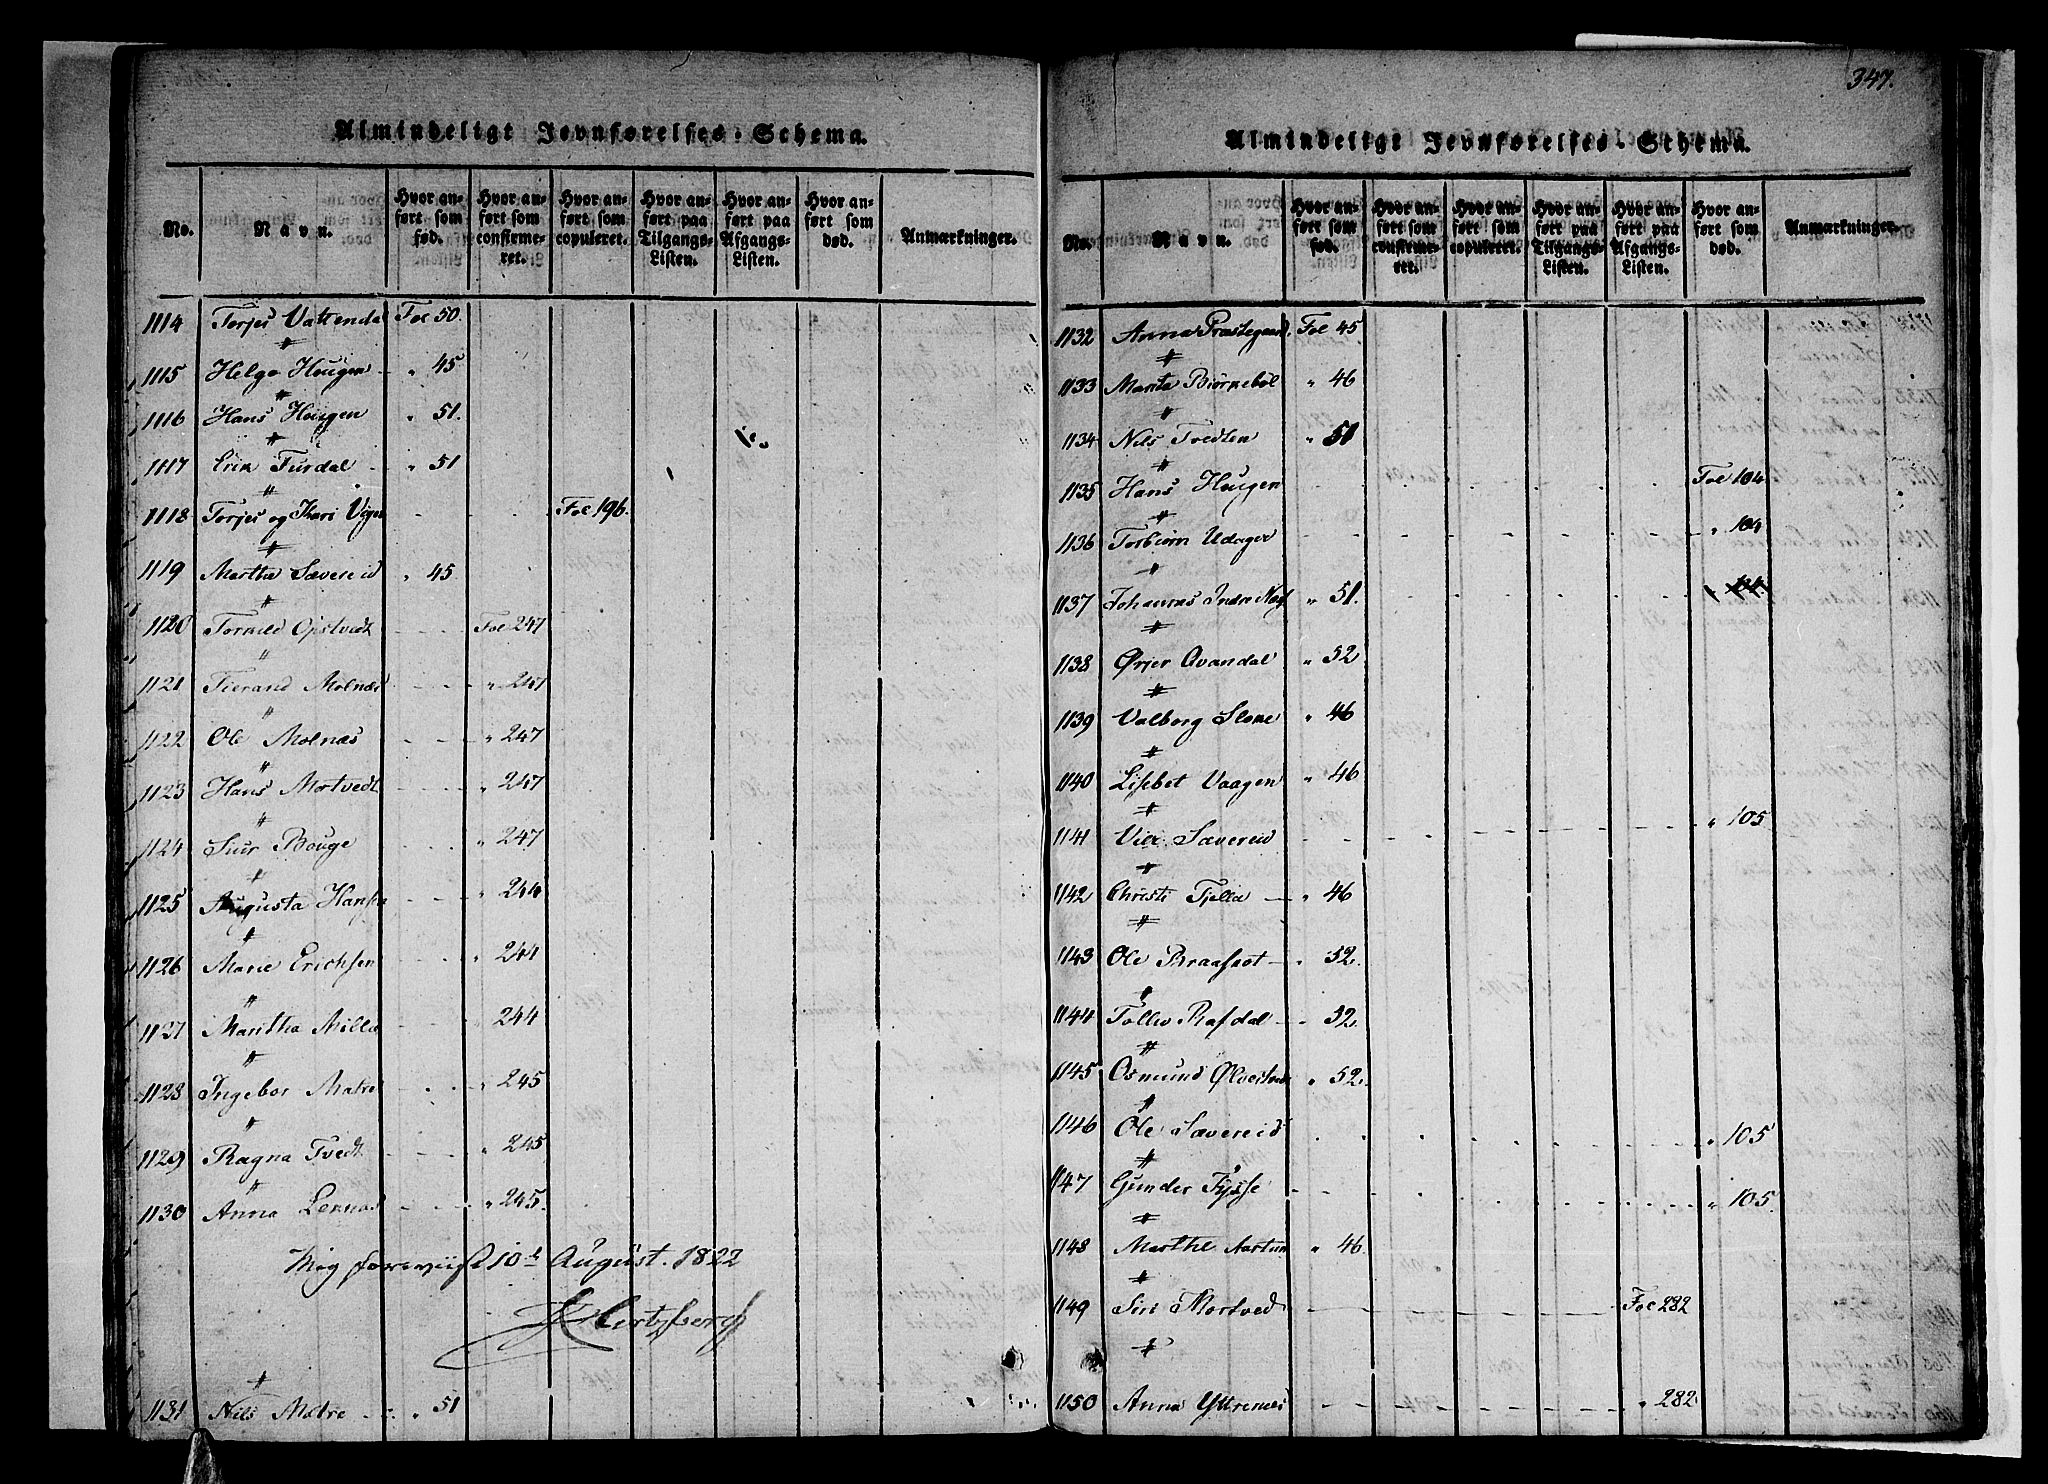 347.
Almindeligt Jevnførelses-Schema.
No.
Navn.
Hvor anført som fød.
Hvor anført som confirmeret.
Hvor anført som copuleret.
Hvor anført paa Tilgangs-Listen.
Hvor anført paa Afgangs-Listen.
Hvor anført som død.
Anmærkninger.
1114 Torjes Fol 50.
1115 Helge Hougen " 45
1116 Hans Hougen " 51.
1117 Erik " 51
1118 Torjes og Kari Fol 196.
1119 Martha Sævereid " 45
1120 Opstvedt Fol 247
1121 Molnæs " 247
1122 Ole Molnæs " 247
1123 Hans Mortvedt " 247
1124 Siur Bouge " 247
1125 Augusta Hansen " 244
1126 Marie Erichsen " 244
1127 Maritha 244
1128 Ingebor Matre " 245
1129 Ragna Tvedt " 245
1130 Anna " 245.
Mig foreviist 10d August. 1822
Hertzberg
1131 Nils Matre " 51
Almindeligt Jevnførelses-Schema.
No.
Navn.
Hvor anført som fød.
Hvor anført som confirmeret.
Hvor anført som copuleret.
Hvor anført paa Tilgangs-Listen.
Hvor anført paa Afgangs-Listen.
Hvor anført som død.
Anmærkninger.
1132 Anna Præstegaard. Fol 45
1133 Marita Biørnebøl " 46
1134 Nils Tvedten " 51
1135 Hans Hougen Fol 104
1136 Torbiørn Udager " 104
1137 Johannes Indre " 51.
1138 Ørjer Qvandal " 52
1139 Valborg " 46
1140 Lisbet Vaagen " 46
1141 Sævereid " 105
1142 Christi " 46
1143 Ole " 52.
1144 Tollev " 52.
1145 Osmund " 52.
1146 Ole Sævereid " 105
1147 Gunder " 105.
1148 Marthe " 46.
1149 Siri Mortved Fol 282
1150 Anna Yttrenæs " 282